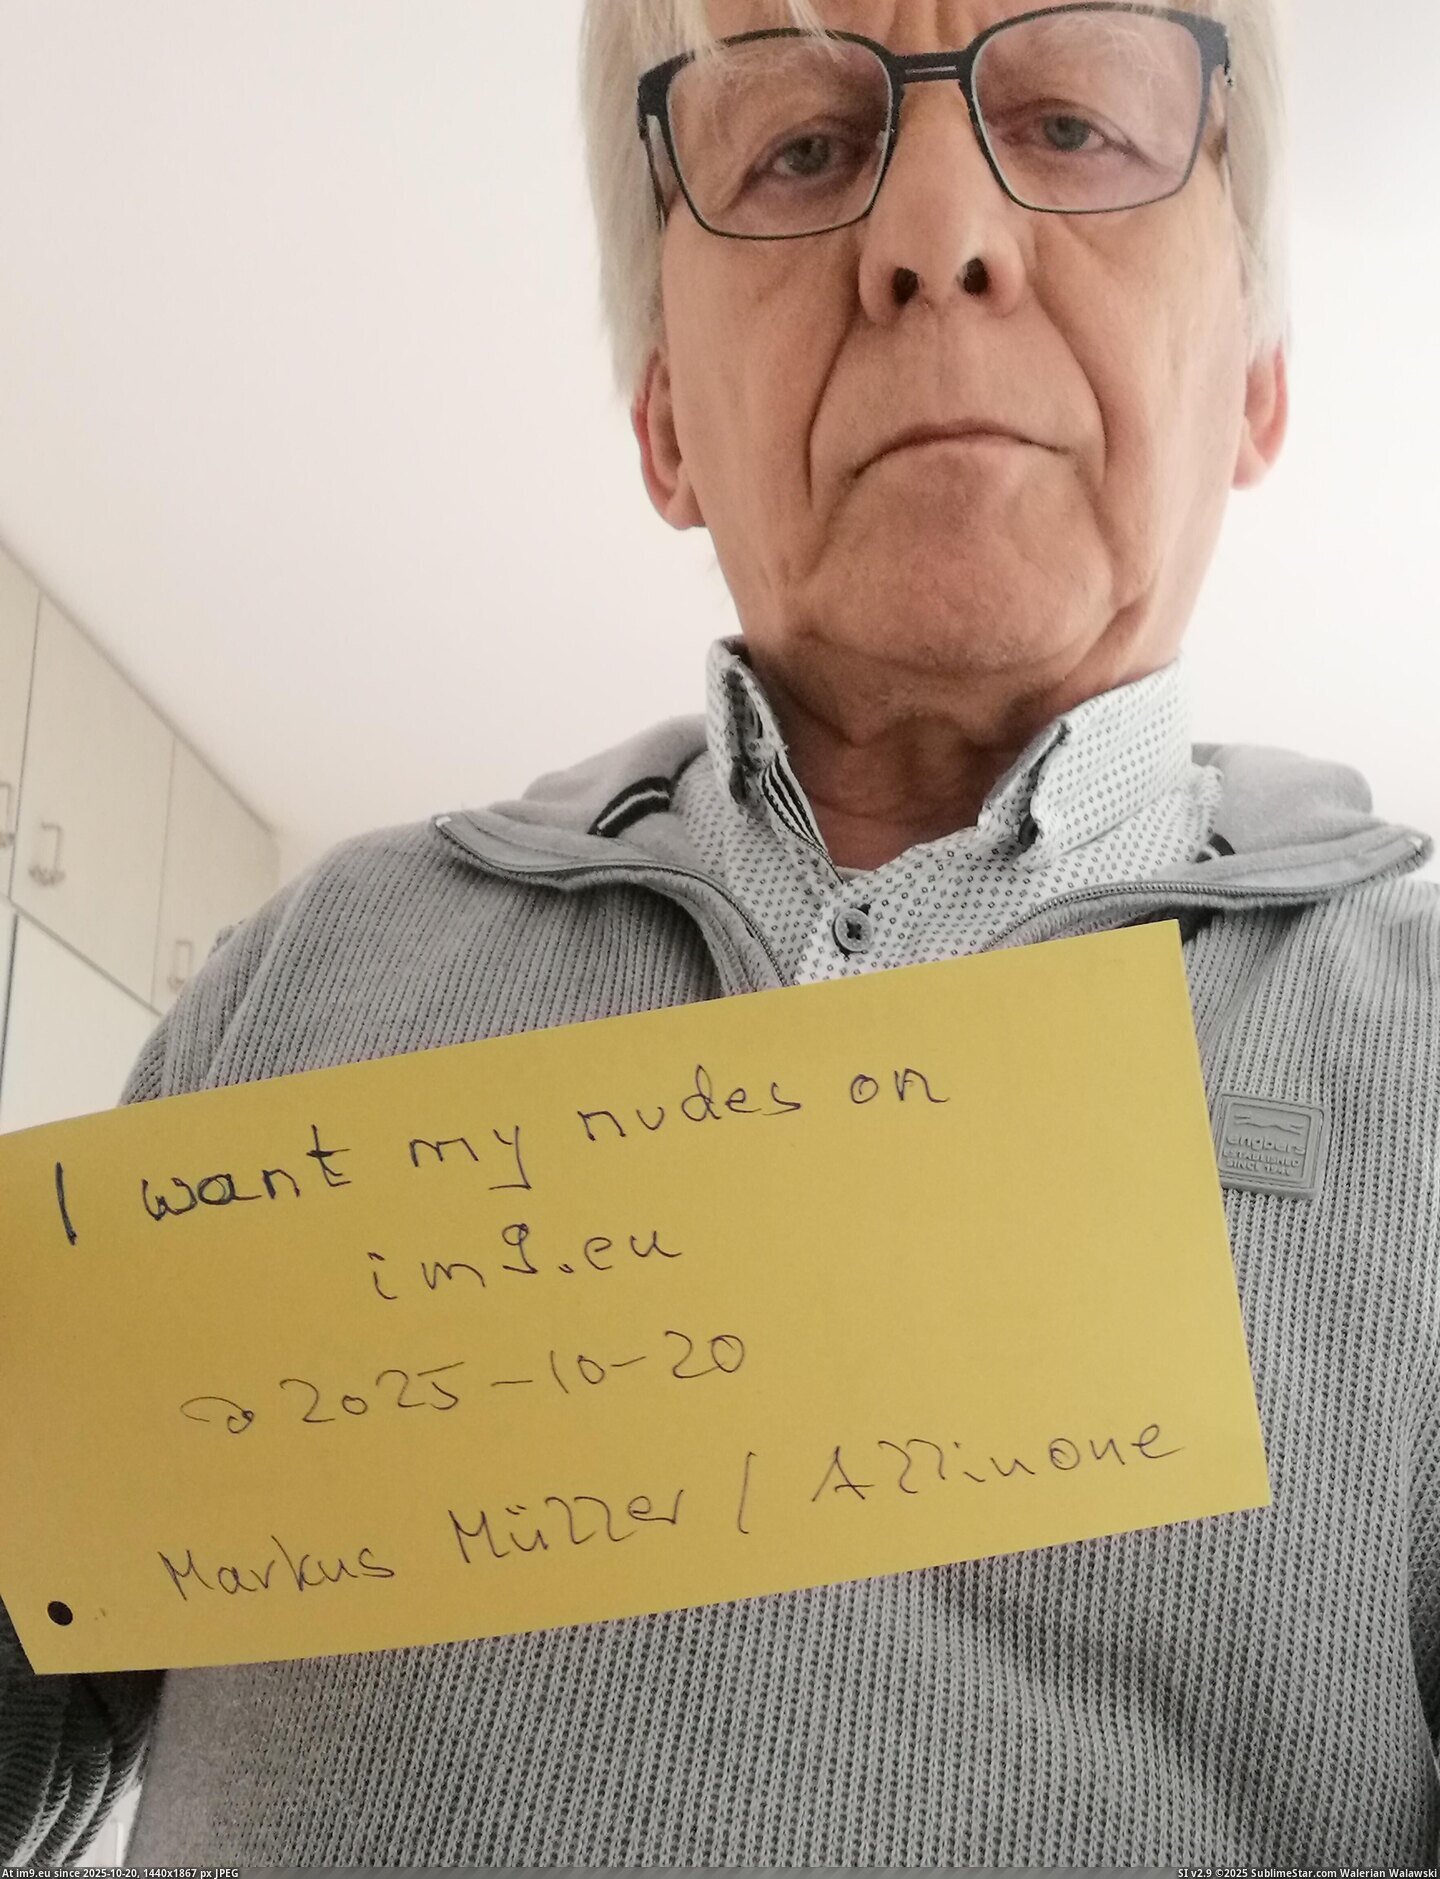 I want my nudes on
im9.eu
2025-10-20
Markus Müller / Allinone
engbers
ESTABLISHED
SINCE
At im9.eu since 2025-10-20, 1440x1867 px JPEG
SI v2.9 ©2025 SublimeStar.com Walerian Walawski